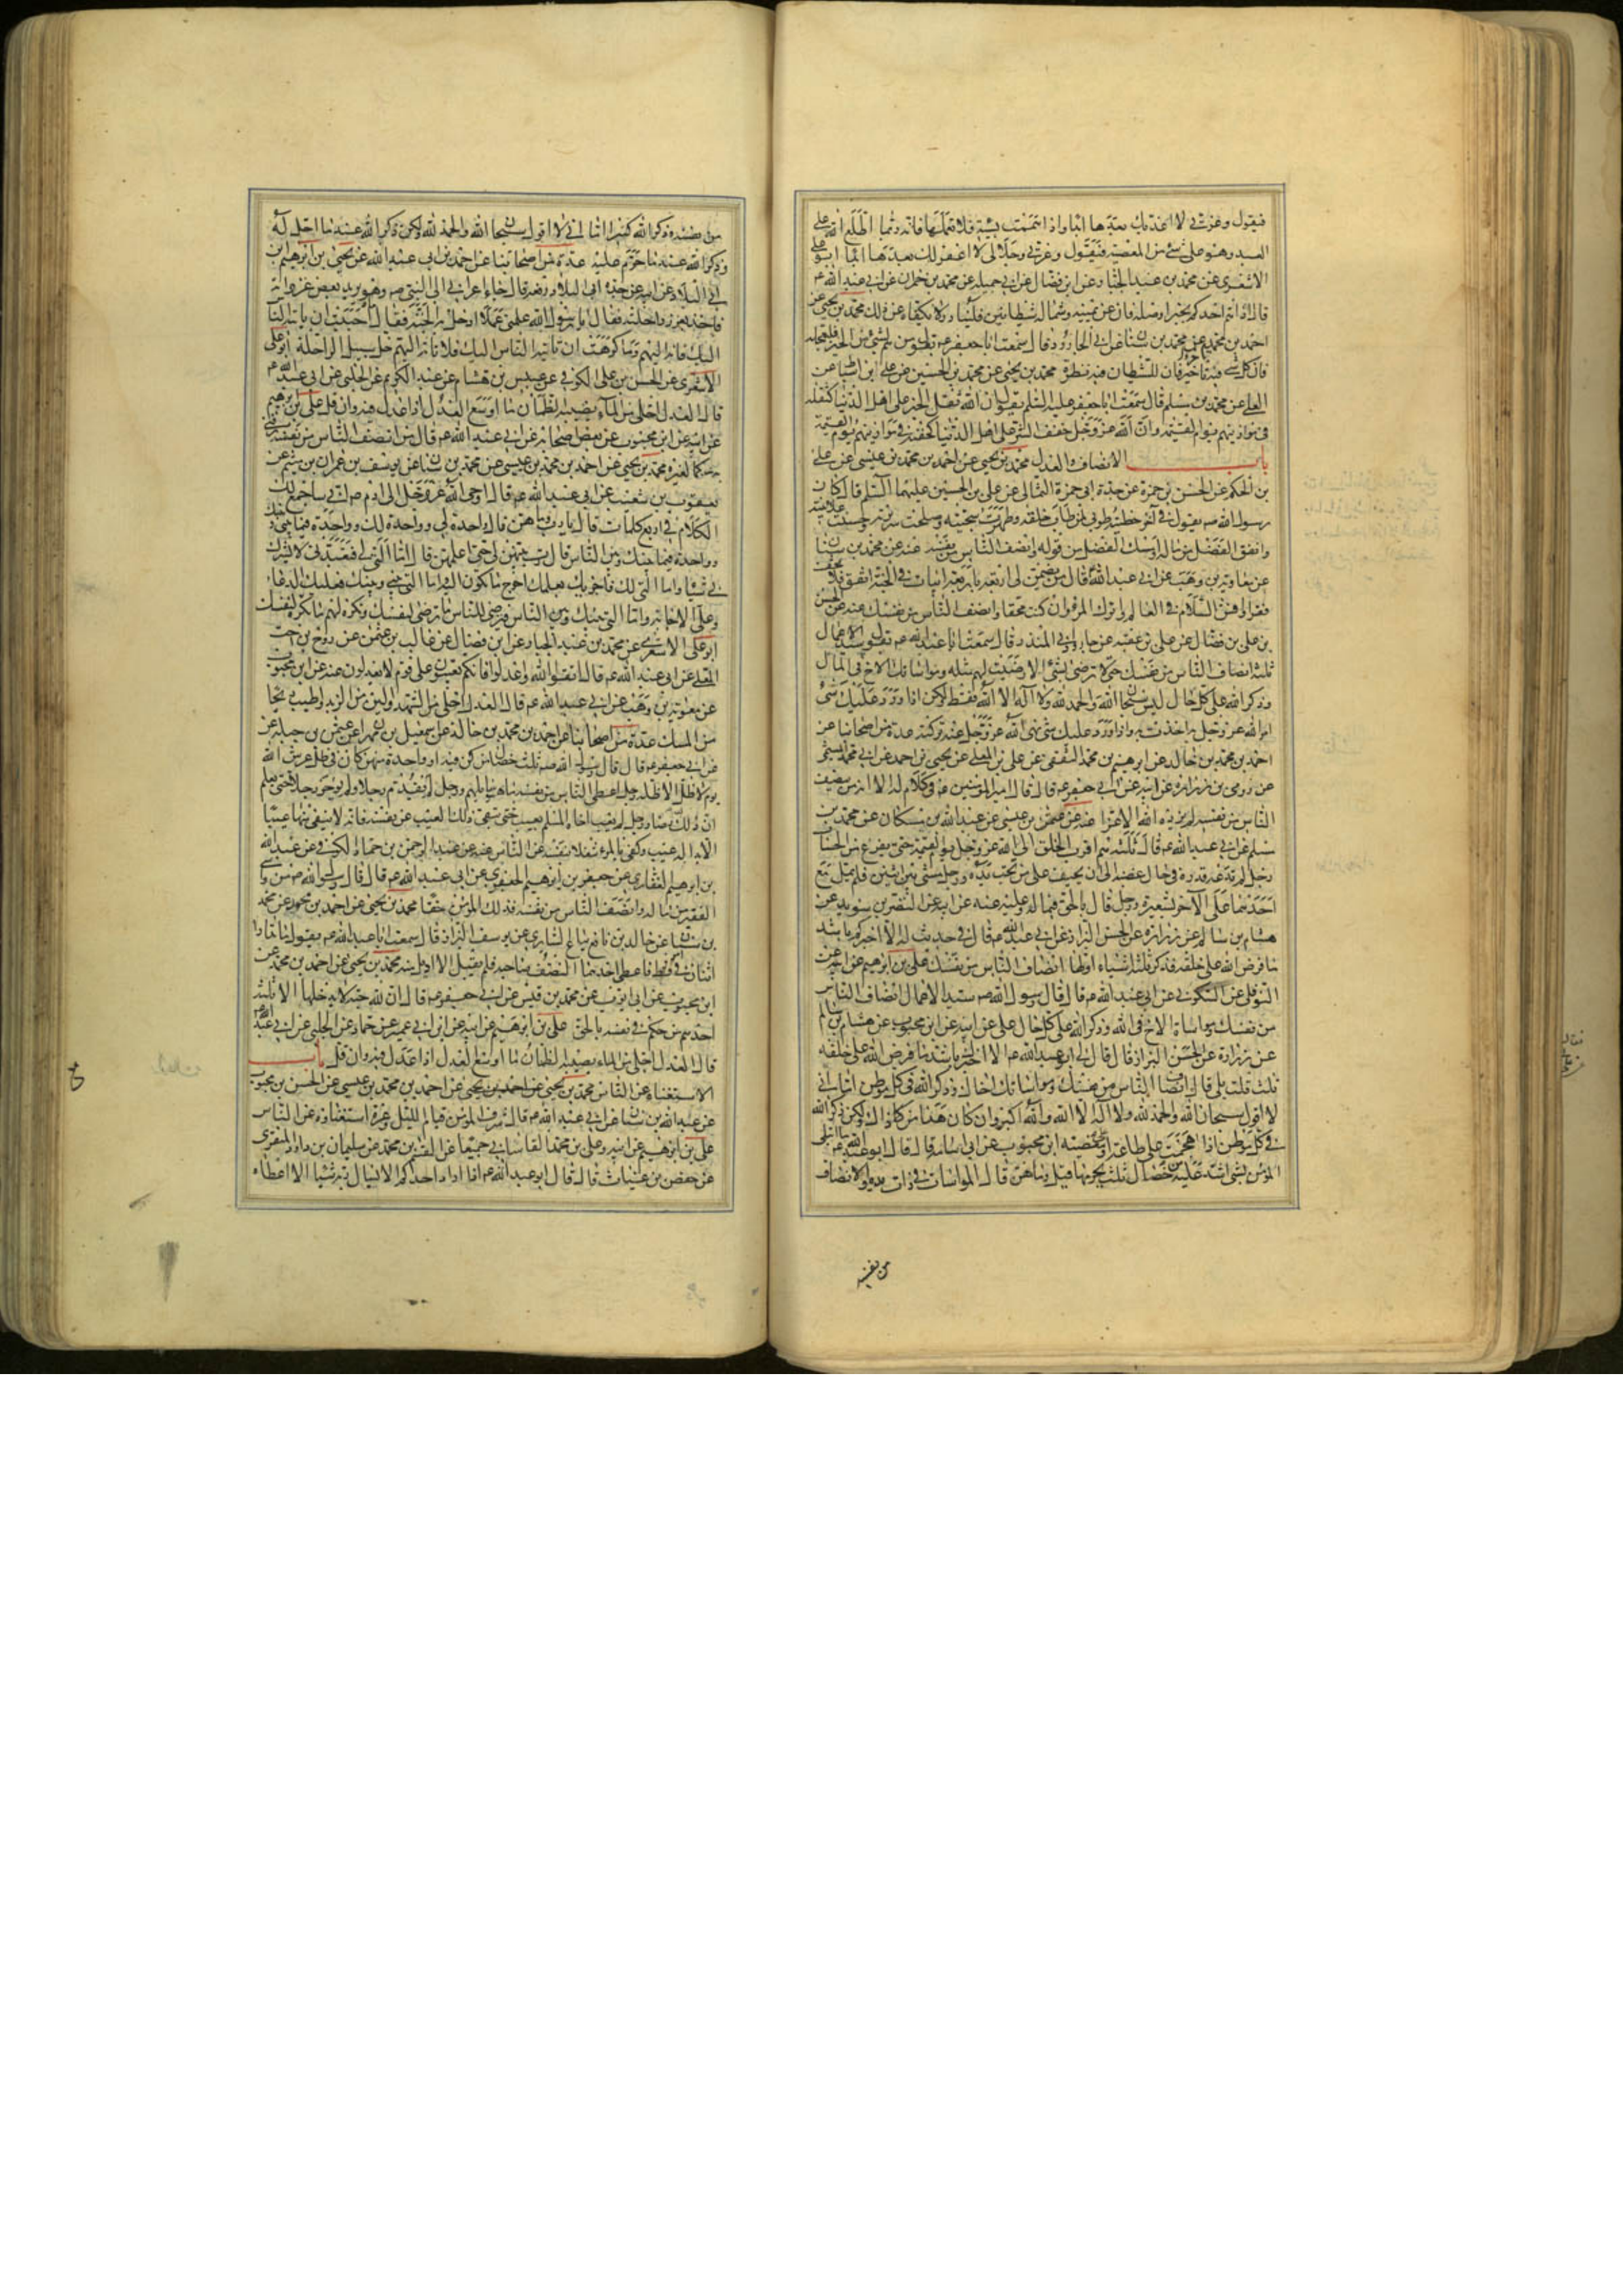 فيقول وعزتي لا اعذبك بعدها ابدا واذا هممت بسيئة فلا تعملها فانه ربما اطلع الله على
العبد وهو على شئ من المعصية فيقول وعزتي وجلالي لا اغفر لك بعدها ابدا ابو على
الاشعرى عن محمد بن عبد الجبار عن ابن فضال عن ابي جميله عن محمد بن حمران عن ابي عبد الله ع
قال اذا هم احدكم بخير او صلة فان عن يمينه وشماله شيطانين فليبادر لا يكفاه عن ذلك محمد بن يحيى عن
احمد بن محمد بن عيسى عن محمد بن سنان عن ابي الجارود قال سمعت ابا جعفر ع يقول من هم بشئ من الخير فليعجله
فان كل شئ فيه تاخير فان للشيطان فيه نظرة محمد بن يحيى عن محمد بن الحسين عن على ابن اسباط عن
العلا عن محمد بن مسلم قال سمعت ابا جعفر عليه السلم يقول ان الله ثقل الخير على اهل الدنيا كثقله
في موازينهم يوم القيمة وان الله عز وجل خفف الشر على اهل الدنيا كخفته في موازينهم يوم القيمة
باب الانصاف والعدل محمد بن يحيى عن احمد بن محمد بن عيسى عن على
بن الحكم عن الحسن بن حمزة عن جده ابي حمزة الثمالى عن على بن الحسين عليهما السلم قال كان
رسول الله صم يقول في آخر خطبته طوبى لمن طاب خلقه وطهرت سجيته وصلحت سريرته وحسنت علانيته
وانفق الفضل من ماله وامسك الفضل من قوله وانصف الناس من نفسه عنه عن محمد بن سنان
عن معاوية بن وهب عن ابي عبد الله قال من يضمن لى اربعة باربعة ابيات في الجنة انفق فلا تخف
فقرا وافش السلام في العالم واترك المراء وان كنت محقا وانصف الناس من نفسك عنه عن الحسن
بن على بن فضال عن على بن عقبه عن جارود ابي المنذر قال سمعت ابا عبد الله ع يقول سيد الاعمال
ثلثة انصاف الناس من نفسك حتى لا ترضى بشئ الا رضيت لهم مثله ومواساتك الاخ في المال
وذكر الله على كل حال ليس سبحان الله والحمد لله ولا اله الا الله فقط ولكن اذا ورد عليك شئ
امر الله عز وجل به اخذت به واذا ورد عليك شئ نهى الله عز وجل عنه تركته عدة من اصحابنا عن
احمد بن محمد بن خالد عن ابرهيم بن محمد الثقفى عن على بن المعلى عن يحيى بن احمد عن ابي محمد الميثمى
عن رومى بن زرارة عن ابيه عن ابي جعفر ع قال قال امير المؤمنين ع في كلام له الا انه من ينصف
الناس من نفسه لم يزده الله الا عزا عنه عن عثمن بن عيسى عن عبد الله بن مسكان عن محمد بن
مسلم عن ابي عبد الله ع قال ثلثة هم اقرب الخلق الى الله عز وجل يوم القيمة حتى يفرغ من الحساب
رجل لم تدعه قدرة في حال غضبه الى ان يحيف على من تحت يده ورجل مشى بين اثنين فلم يمل مع
احدهما على الآخر بشعيرة ورجل قال بالحق فيما له وعليه عنه عن ابيه عن النضر بن سويد عن
هشام بن سالم عن زرارة عن الحسن البزاز عن ابي عبد الله ع قال في حديث له الا اخبركم باشد
ما فرض الله على خلقه فذكر ثلثة اشياء اولها انصاف الناس من نفسك على بن ابرهيم عن ابيه عن
النوفلى عن السكونى عن ابي عبد الله ع قال قال رسول الله صم سيد الاعمال انصاف الناس
من نفسك ومواساة الاخ في الله وذكر الله على كل حال على عن ابيه عن ابن محبوب عن هشام بن سالم
عن زرارة عن الحسن البزاز قال قال لي ابو عبد الله ع الا اخبرك باشد ما فرض الله على خلقه
ثلث قلت بلى قال انصاف الناس من نفسك ومواساتك اخاك وذكر الله في كل موطن اما انى
لا اقول سبحان الله والحمد لله ولا اله الا الله والله اكبر وان كان هذا من ذاك ولكن ذكر الله
في كل موطن اذا هجمت على طاعة او معصية ابن محبوب عن ابي اسامة قال قال ابو عبد الله ع ما ابتلى
المؤمن بشئ اشد عليه من خصال ثلث يحرمها قيل وما هن قال المواسات في ذات يده والانصاف
من نفسه
من نفسه وذكر الله كثيرا اما انى لا اقول سبحان الله والحمد لله ولكن ذكر الله عند ما احل له
وذكر الله عند ما حرم عليه عدة من اصحابنا عن احمد بن ابي عبد الله عن يحيى بن ابرهيم ابن
ابي البلاد عن ابيه عن جده ابي البلاد رفعه قال جاء اعرابي الى النبى صم وهو يريد بعض غزواته
فاخذ بغرز راحلته فقال يا رسول الله علمنى عملا ادخل به الجنة فقال ما احببت ان ياتيه الناس
اليك فاته اليهم وما كرهت ان ياتيه الناس اليك فلا تاته اليهم خل سبيل الراحلة ابو على
الاشعرى عن الحسن بن على الكوفي عن عبيس بن هشام عن عبد الكريم عن الحلبى عن ابي عبد الله ع
قال العدل احلى من الماء يصيبه الظمان ما اوسع العدل اذا عدل فيه وان قل على بن ابرهيم
عن ابيه عن ابن محبوب عن بعض اصحابه عن ابي عبد الله ع قال من انصف الناس من نفسه رضى
به حكما لغيره محمد بن يحيى عن احمد بن محمد بن عيسى عن محمد بن سنان عن يوسف بن عمران بن ميثم عن
يعقوب بن شعيب عن ابي عبد الله ع قال اوحى الله عز وجل الى ادم ص انى ساجمع لك
الكلام في اربع كلمات قال يا رب وما هن قال واحدة لى وواحدة لك وواحدة فيما بينى وبينك
وواحدة فيما بينك وبين الناس قال رب بينهن لى حتى اعلمهن قال اما التى لى فتعبدنى لا تشرك
بي شيئا واما التى لك فاجزيك بعملك احوج ما تكون اليه واما التى بينى وبينك فعليك الدعاء
وعلى الاجابة واما التى بينك وبين الناس فترضى للناس ما ترضى لنفسك وتكره لهم ما تكره لنفسك
ابو على الاشعرى عن محمد بن عبد الجبار عن ابن فضال عن غالب بن عثمن عن روح بن اخت
المعلى عن ابي عبد الله ع قال اتقوا الله واعدلوا فانكم تعيبون على قوم لا يعدلون عنه عن ابن محبوب
عن معوية بن وهب عن ابي عبد الله ع قال العدل احلى من الشهد والين من الزبد واطيب ريحا
من المسك عدة من اصحابنا عن احمد بن محمد بن خالد عن اسمعيل بن مهران عن عثمن بن جبلة عن
ابي جعفر ع قال قال رسول الله صم ثلث خصال من كن فيه او واحدة منهن كان في ظل عرش الله
يوم لا ظل الا ظله رجل اعطى الناس من نفسه ما هو سائلهم ورجل لم يقدم رجلا ولم يؤخر رجلا حتى يعلم
ان ذلك لله رضا ورجل لم يعب اخاه المسلم بعيب حتى ينفى ذلك العيب عن نفسه فانه لا ينفى منها عيبا
الا بدا له عيب وكفى بالمرء شغلا بنفسه عن الناس عنه عن عبد الرحمن بن حماد الكوفي عن عبد الله
بن ابرهيم الغفارى عن جعفر بن ابرهيم الجعفرى عن ابي عبد الله ع قال قال رسول الله صم من واسى
الفقير من ماله وانصف الناس من نفسه فذلك المؤمن حقا محمد بن يحيى عن احمد بن محمد عن محمد
بن سنان عن خالد بن نافع بياع السابري عن يوسف البزاز قال سمعت ابا عبد الله ع يقول ما تدارا
اثنان في امر قط فاعطى احدهما النصف صاحبه فلم يقبل الا اديل منه محمد بن يحيى عن احمد بن محمد عن
ابن محبوب عن ابي ايوب عن محمد بن قيس عن ابي جعفر ع قال ان لله جنة لا يدخلها الا ثلثة
احدهم من حكم في نفسه بالحق على بن ابرهيم عن ابيه عن ابن ابي عمير عن حماد عن الحلبى عن ابي عبد الله ع
قال العدل احلى من الماء يصيبه الظمان ما اوسع العدل اذا عدل فيه وان قل باب
الاستغناء عن الناس محمد بن يحيى عن احمد بن محمد بن عيسى عن الحسن بن محبوب
عن عبد الله بن سنان عن ابي عبد الله ع قال شرف المؤمن قيام الليل وعزه استغناؤه عن الناس
على بن ابرهيم عن ابيه وعلى بن محمد القاسانى جميعا عن القسم بن محمد عن سليمان بن داود المنقرى
عن حفص بن غياث قال قال ابو عبد الله ع اذا اراد احدكم الا يسال ربه شيئا الا اعطاه